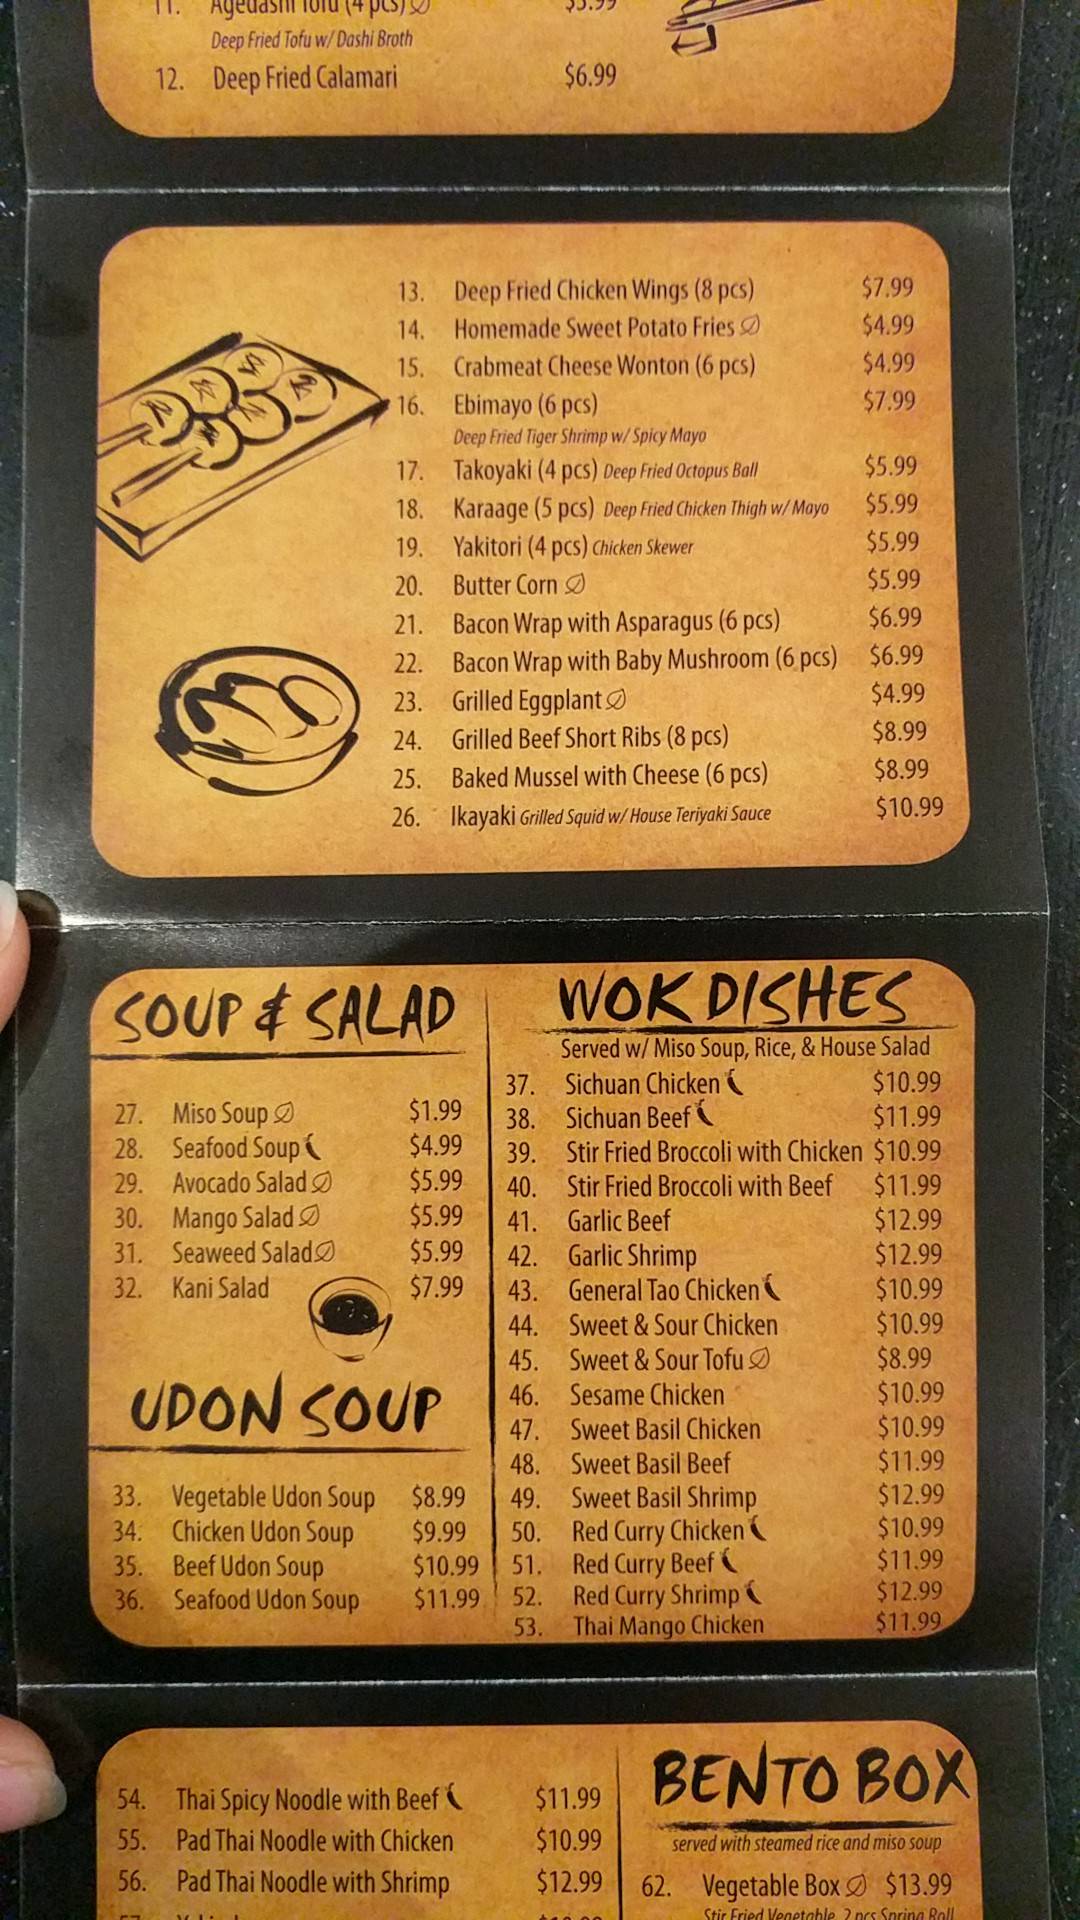 11. Agedashi Tofu (4 pcs) $5.99
Deep Fried Tofu w/ Dashi Broth
12. Deep Fried Calamari $6.99
13. Deep Fried Chicken Wings (8 pcs) $7.99
14. Homemade Sweet Potato Fries $4.99
15. Crabmeat Cheese Wonton (6 pcs) $4.99
16. Ebimayo (6 pcs) $7.99
Deep Fried Tiger Shrimp w/ Spicy Mayo
17. Takoyaki (4 pcs) Deep Fried Octopus Ball $5.99
18. Karaage (5 pcs) Deep Fried Chicken Thigh w/ Mayo $5.99
19. Yakitori (4 pcs) Chicken Skewer $5.99
20. Butter Corn $5.99
21. Bacon Wrap with Asparagus (6 pcs) $6.99
22. Bacon Wrap with Baby Mushroom (6 pcs) $6.99
23. Grilled Eggplant $4.99
24. Grilled Beef Short Ribs (8 pcs) $8.99
25. Baked Mussel with Cheese (6 pcs) $8.99
26. Ikayaki Grilled Squid w/ House Teriyaki Sauce $10.99
SOUP & SALAD
27. Miso Soup $1.99
28. Seafood Soup $4.99
29. Avocado Salad $5.99
30. Mango Salad $5.99
31. Seaweed Salad $5.99
32. Kani Salad $7.99
UDON SOUP
33. Vegetable Udon Soup $8.99
34. Chicken Udon Soup $9.99
35. Beef Udon Soup $10.99
36. Seafood Udon Soup $11.99
WOK DISHES
Served w/ Miso Soup, Rice, & House Salad
37. Sichuan Chicken $10.99
38. Sichuan Beef $11.99
39. Stir Fried Broccoli with Chicken $10.99
40. Stir Fried Broccoli with Beef $11.99
41. Garlic Beef $12.99
42. Garlic Shrimp $12.99
43. General Tao Chicken $10.99
44. Sweet & Sour Chicken $10.99
45. Sweet & Sour Tofu $8.99
46. Sesame Chicken $10.99
47. Sweet Basil Chicken $10.99
48. Sweet Basil Beef $11.99
49. Sweet Basil Shrimp $12.99
50. Red Curry Chicken $10.99
51. Red Curry Beef $11.99
52. Red Curry Shrimp $12.99
53. Thai Mango Chicken $11.99
54. Thai Spicy Noodle with Beef $11.99
55. Pad Thai Noodle with Chicken $10.99
56. Pad Thai Noodle with Shrimp $12.99
BENTO BOX
served with steamed rice and miso soup
62. Vegetable Box $13.99
Stir Fried Vegetable, 2 pcs Spring Roll